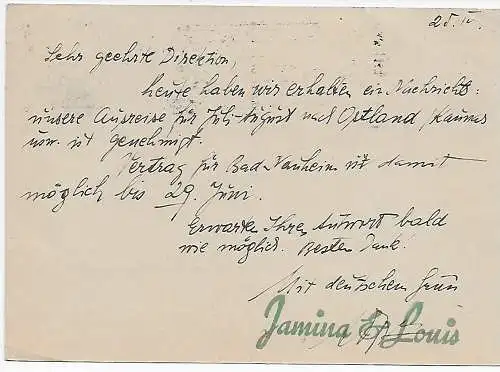 25. IV.
Sehr geehrte Direktion,
heute haben wir erhalten ein Nachricht:
unsere Ausreise für Juli-August nach Ostland / Kaunas
usw. ist genehmigt.
Vertrag für Bad-Nauheim ist damit
möglich bis 29. Juni.
Erwarte Ihren Antwort bald
wie möglich. Besten Dank!
Mit deutschem Gruss
Jamina & Louis